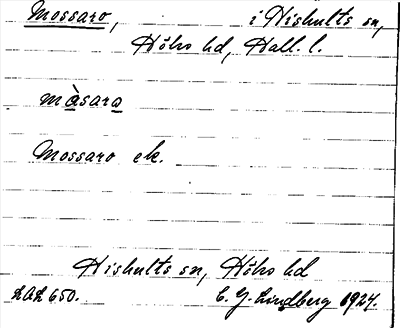 Mossaro, i Hishults sn,
Höks hd, Hall. l.
màsara
Mossaro ek.
Hishults sn, Höks hd
LAL 650. C. G. Lindberg 1924.